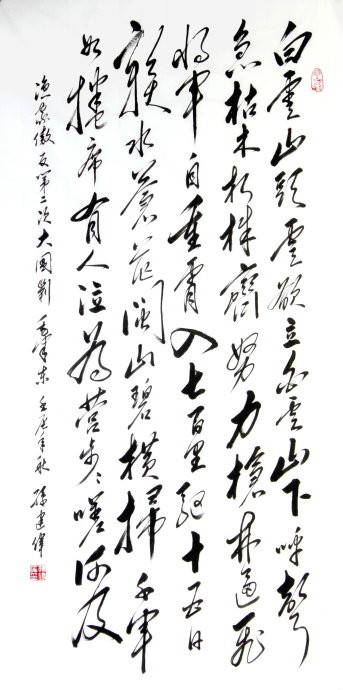 白雲山頭雲欲立白雲山下呼聲
急枯木朽株齊努力槍林逼飛
將軍自重霄入七百里驅十五日
贛水蒼茫閩山碧橫掃千軍
如捲席有人泣為營步々嗟何及
漁家傲反第二次大圍剿 毛澤東 壬辰年秋 孫建偉